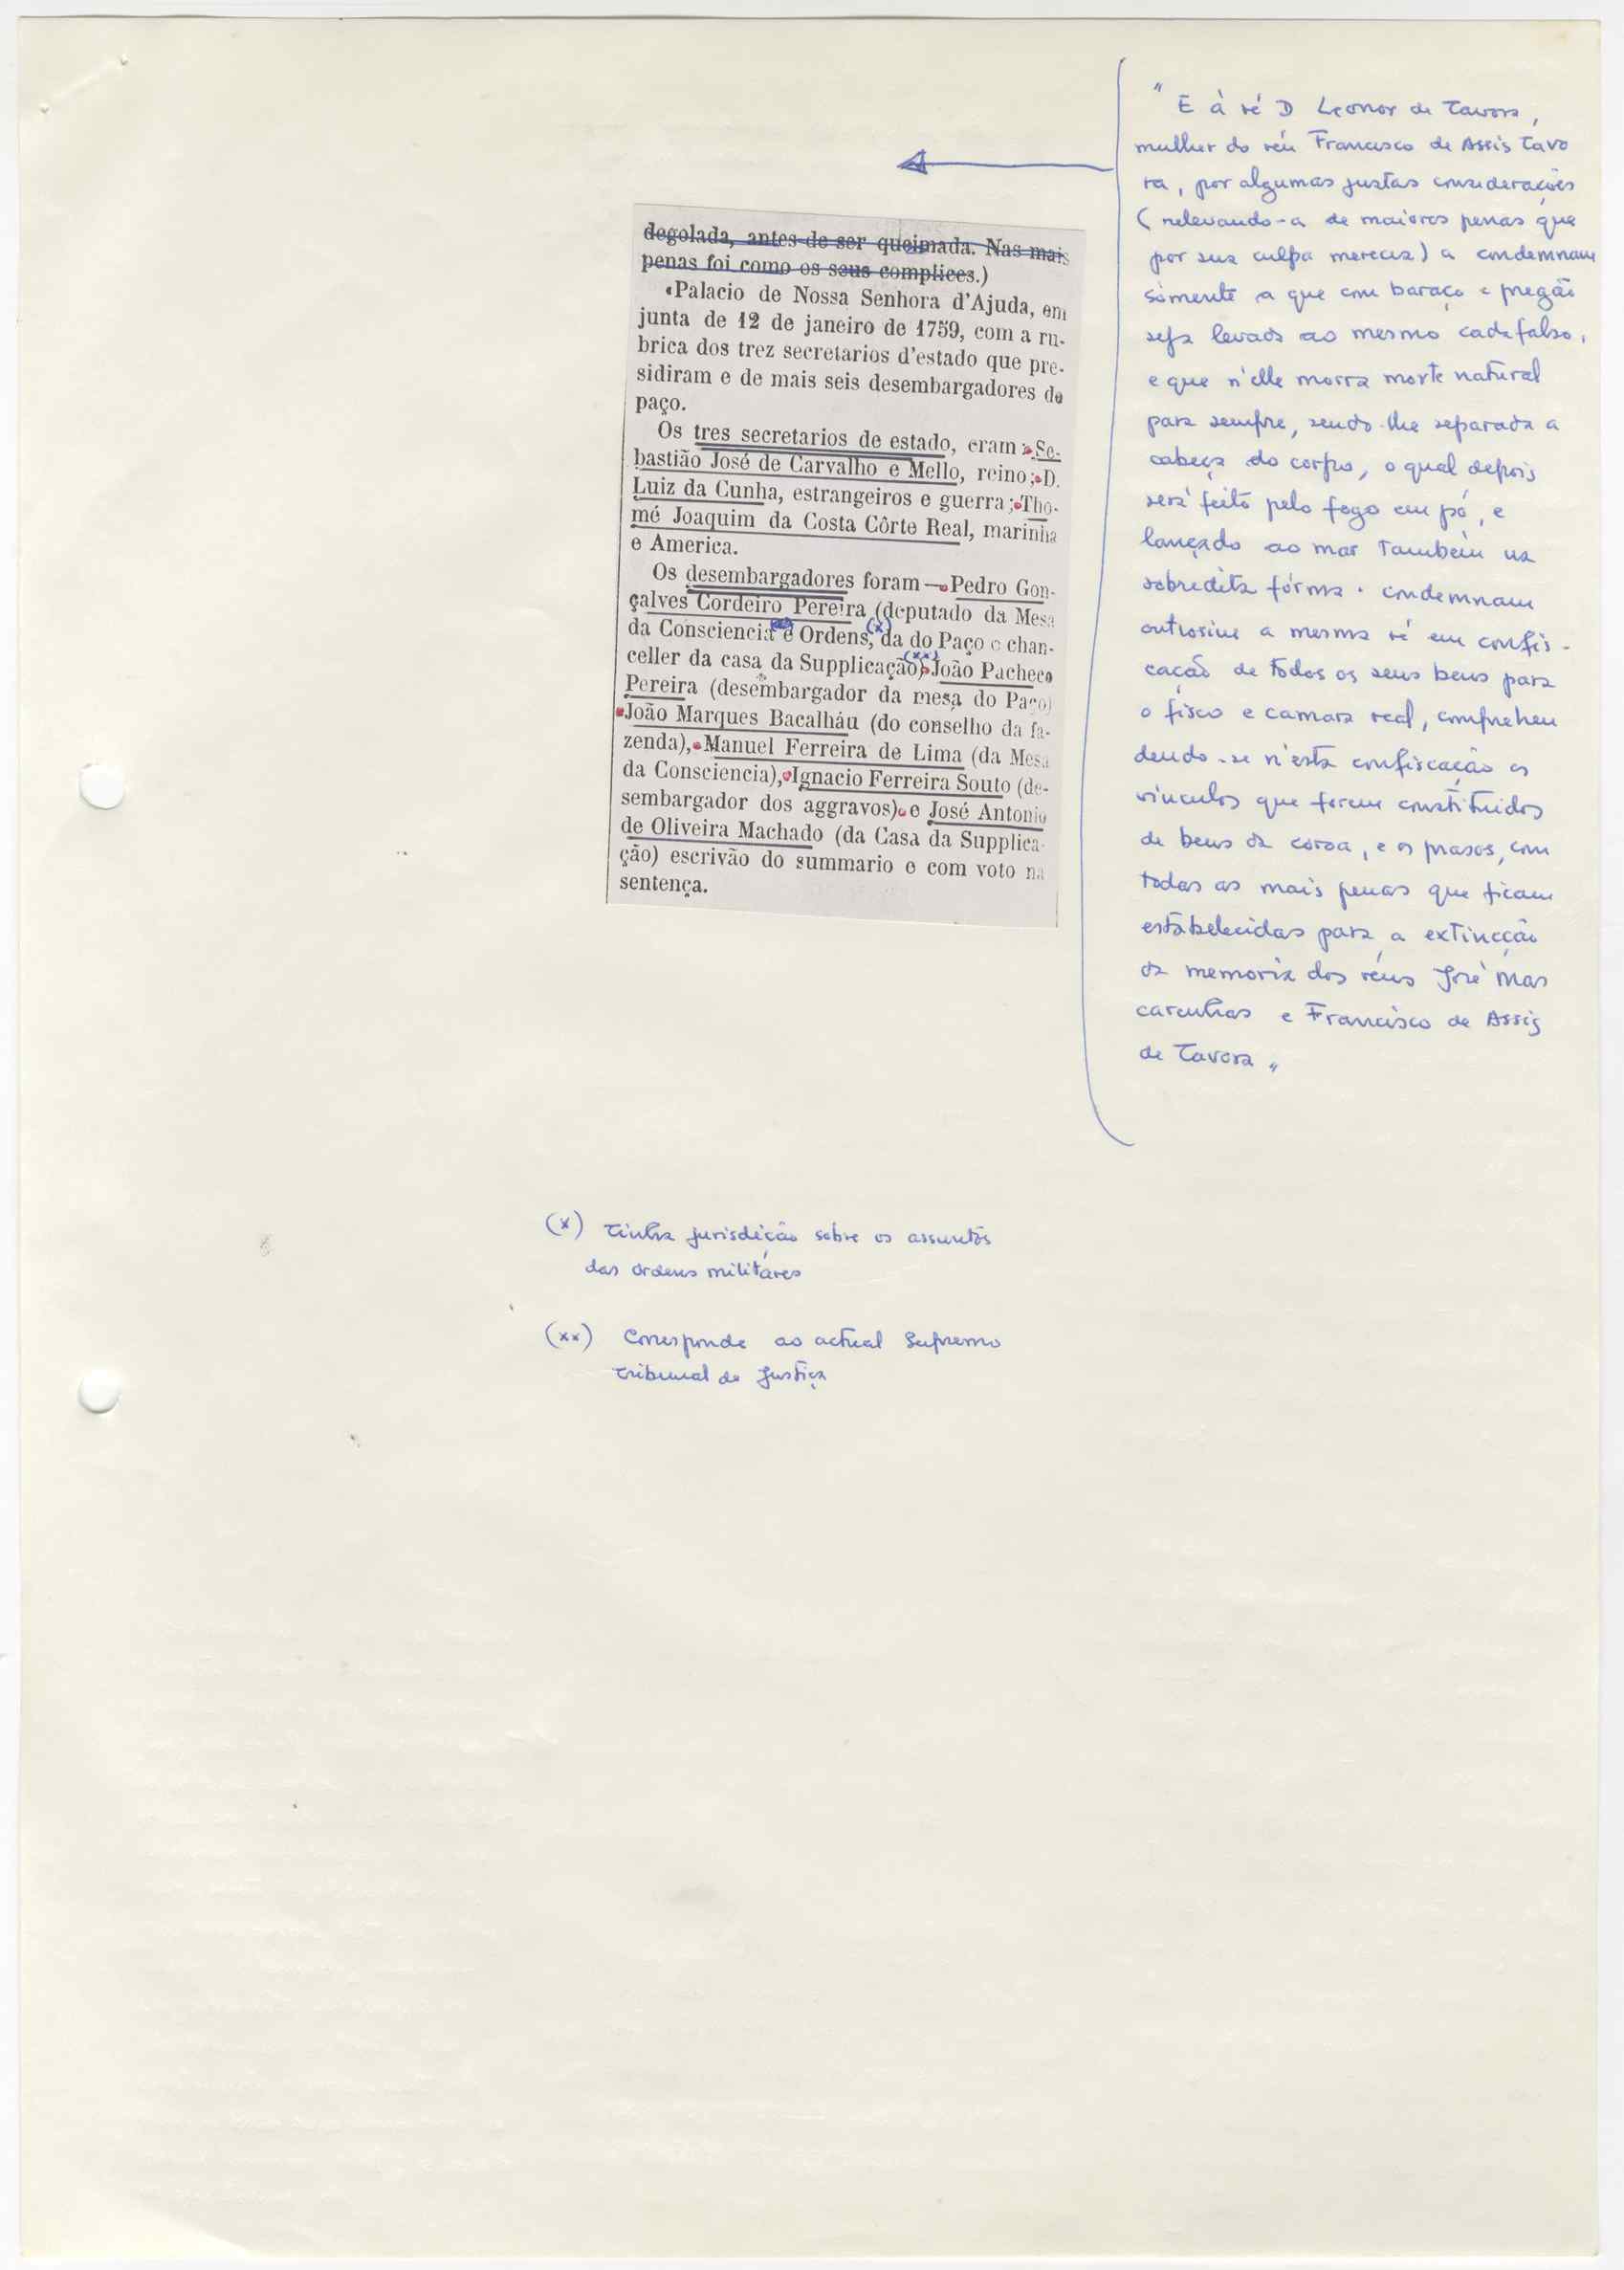 " E à ré D Leonor de Tavora,
mulher do réu Francisco de Assis Tavo
ra, por algumas justas considerações
(relevando-a de maiores penas que
por sua culpa merecia) a condemnam
sómente a que com baraço e pregão
seja levada ao mesmo cadafalso,
e que n'elle morra morte natural
para sempre, sendo-lhe separada a
cabeça do corpo, o qual depois
será feito pelo fogo em pó, e
lançado ao mar tambèm na
sobredita fórma. condemnam
outrosim a mesma ré em confis-
cação de todos os seus bens para
o fisco e camara real, comprehen
dendo-se n'esta confiscação os
vinculos que forem constituidos
de bens da coroa, e os prasos, com
todas as mais penas que ficam
estabelecidas para a extincção
da memoria dos réus José Mas
carenhas e Francisco de Assis
de Tavora "
degolada, antes de ser queimada. Nas mais
penas foi como os seus complices.)
«Palacio de Nossa Senhora d'Ajuda, em
junta de 12 de janeiro de 1759, com a ru-
brica dos trez secretarios d'estado que pre-
sidiram e de mais seis desembargadores do
paço.
Os tres secretarios de estado, eram: Se-
bastião José de Carvalho e Mello, reino; D.
Luiz da Cunha, estrangeiros e guerra; Tho-
mé Joaquim da Costa Côrte Real, marinha
e America.
Os desembargadores foram—Pedro Gon-
çalves Cordeiro Pereira (deputado da Mesa
da Consciencia e Ordens, (x) da do Paço e chan-
celler da casa da Supplicação) (xx) João Pacheco
Pereira (desembargador da mesa do Paço)
João Marques Bacalháu (do conselho da fa-
zenda), Manuel Ferreira de Lima (da Mesa
da Consciencia), Ignacio Ferreira Souto (de-
sembargador dos aggravos) e José Antonio
de Oliveira Machado (da Casa da Supplica-
ção) escrivão do summario e com voto na
sentença.
(x) Tinha jurisdição sobre os assuntos
das ordens militares
(xx) Corresponde ao actual Supremo
Tribunal de Justiça